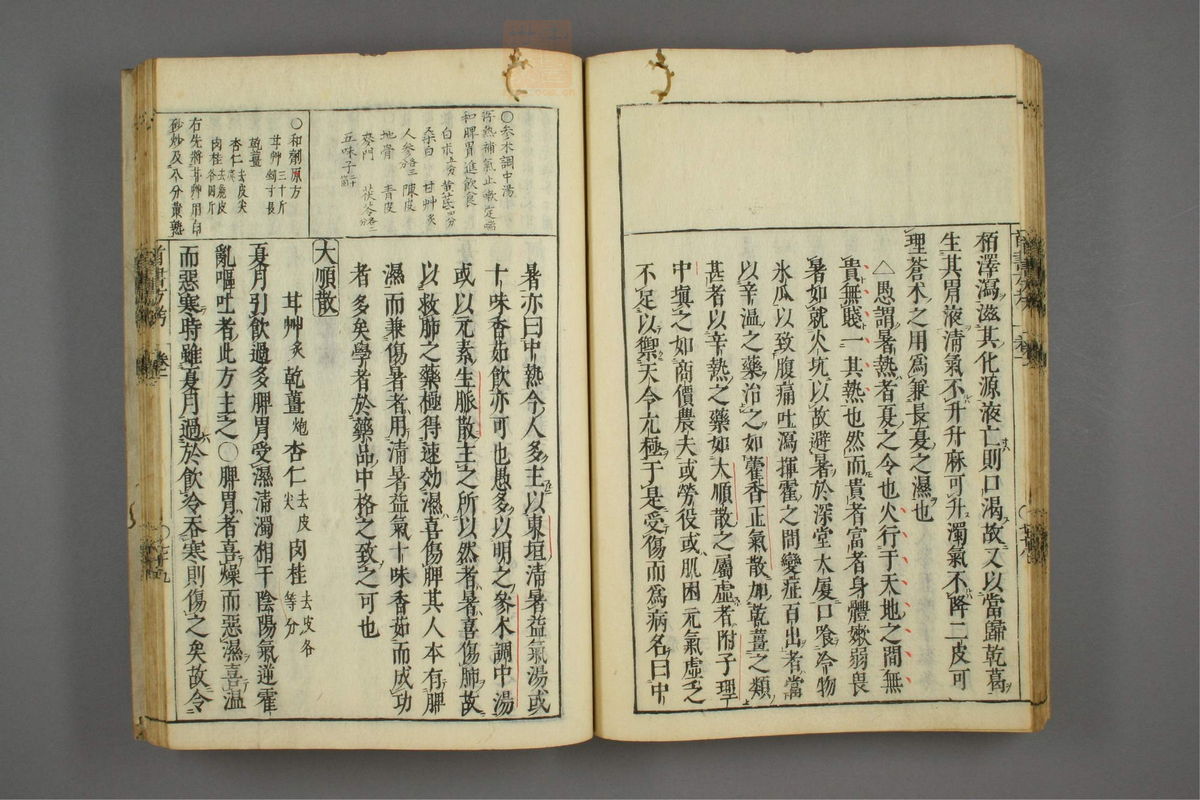 栢澤瀉滋其化源液亡則口渴故又以當歸乾葛
生其胃液清氣不升升麻可升濁氣不降二皮可
理蒼术之用爲兼長夏之濕也
△愚謂暑熱者夏之令也火行于天地之間無
貴無賤一其熱也然而貴者富者身體嫩弱畏
暑如就火坑以故避暑於深堂大厦口飡冷物
氷瓜以致腹痛吐瀉揮霍之間變症百出者當
以辛温之藥治之如藿香正氣散加乾薑之類
甚者以辛熱之藥如大順散之屬虚者附子理
中塡之如商價農夫或勞役或肌困元氣虚乏
不足以禦天令亢極于是受傷而爲病名曰中
暑亦曰中熱今人多主以東垣清暑益氣湯或
十味香茹飲亦可也愚多以明之參术調中湯
或以元素生脈散主之所以然者暑喜傷肺故
以救肺之藥極得速効濕喜傷脾其人本有脾
濕而兼傷暑者用清暑益氣十味香茹而成功
者多矣學者於藥品中格之致之可也
大順散
甘艸炙 乾薑炮 杏仁去皮尖 肉桂去皮各等分
夏月引飲過多脾胃受濕清濁相干陰陽氣逆霍
亂嘔吐者此方主之○脾胃者喜燥而惡濕喜温
而惡寒時雖夏月過於飲冷呑寒則傷之矣故令
○參术調中湯
瀉熱補氣止嗽定喘
和脾胃進飲食
白术五分 黄芪四分
桒白 甘艸炙
人參各三 陳皮
地骨 青皮
麥門 茯苓各二分
五味子二十箇
○和劑原方
甘艸三十斤剉寸長
乾薑
杏仁去皮尖炒
肉桂去麁皮各四斤
右先將甘艸用白
砂炒及八分黄熟